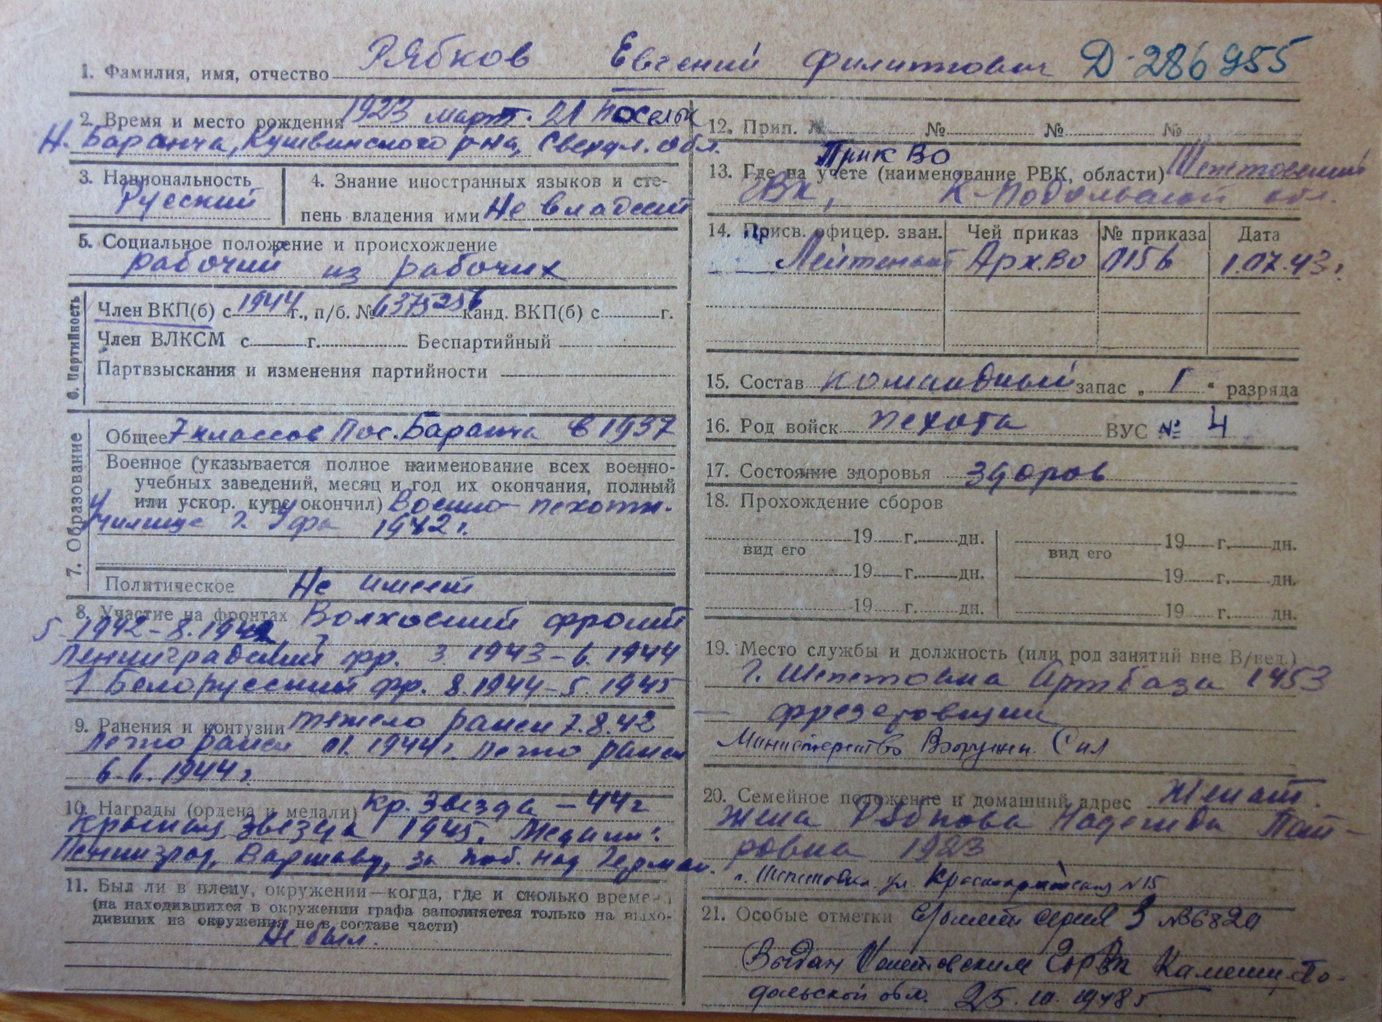 1. Фамилия, имя, отчество Рябков Евгений Филиппович Д-286955
2. Время и место рождения 1923 март. 21 поселок
Н. Баранча, Кушвинского р-на, Свердл. обл.
3. Национальность
Русский
4. Знание иностранных языков и сте-
пень владения ими Не владеет
5. Социальное положение и происхождение
рабочий из рабочих
6. Партийность
Член ВКП(б) с 1944 г., п/б. № 6375256 канд. ВКП(б) с г.
Член ВЛКСМ с г. Беспартийный
Партвзыскания и изменения партийности
7. Образование
Общее 7 классов Пос. Баранча в 1937
Военное (указывается полное наименование всех военно-
учебных заведений, месяц и год их окончания, полный
или ускор. курс окончил) Военно-пехотн.
Училище г. Уфа 1942 г.
Политическое Не имеет
8. Участие на фронтах Волховский фронт
5 1942-8.1942
Ленинградский фр. 3. 1943-6. 1944
1 Белорусский фр. 8.1944-5.1945
9. Ранения и контузии тяжело ранен 7.8.42
Легко ранен 01.1944г. Легко ранен
6.6.1944г.
10. Награды (ордена и медали) Кр. Звезда - 44г
Красная Звезда 1945. Медали:
Ленинград, Варшаву, за поб. над Герман.
11. Был ли в плену, окружении—когда, где и сколько време-
(на находившихся в окружении графа заполняется только на выхо-
дивших из окружения не в составе части)
Не был.
12. Прип. № № № №
ПрикВО
13. Где на учете (наименование РВК, области) Шепетовский
ГВК, К-Подольской обл.
14. Присв. офицер. зван. Чей приказ № приказа Дата
Лейтенант АрхВО 0156 1.07.43г.
15. Состав командный запас „ 1 “ разряда
16. Род войск пехота ВУС № 4
17. Состояние здоровья здоров
18. Прохождение сборов
19 г. дн. 19 г. дн.
вид его вид его
19 г. дн. 19 г. дн.
19 г. дн. 19 г. дн.
19. Место службы и должность (или род занятий вне В/вед.)
г. Шепетовка Артбаза 1453
фрезеровщик
Министерство Вооружен. Сил
20. Семейное положение и домашний адрес Женат.
жена Рябкова Надежда Пет-
ровна 1923
г. Шепетовка ул. Красноармейская №15
21. Особые отметки серия №
Выдан Шепетовским ГорВК Каменец-По-
дольской обл. 25.